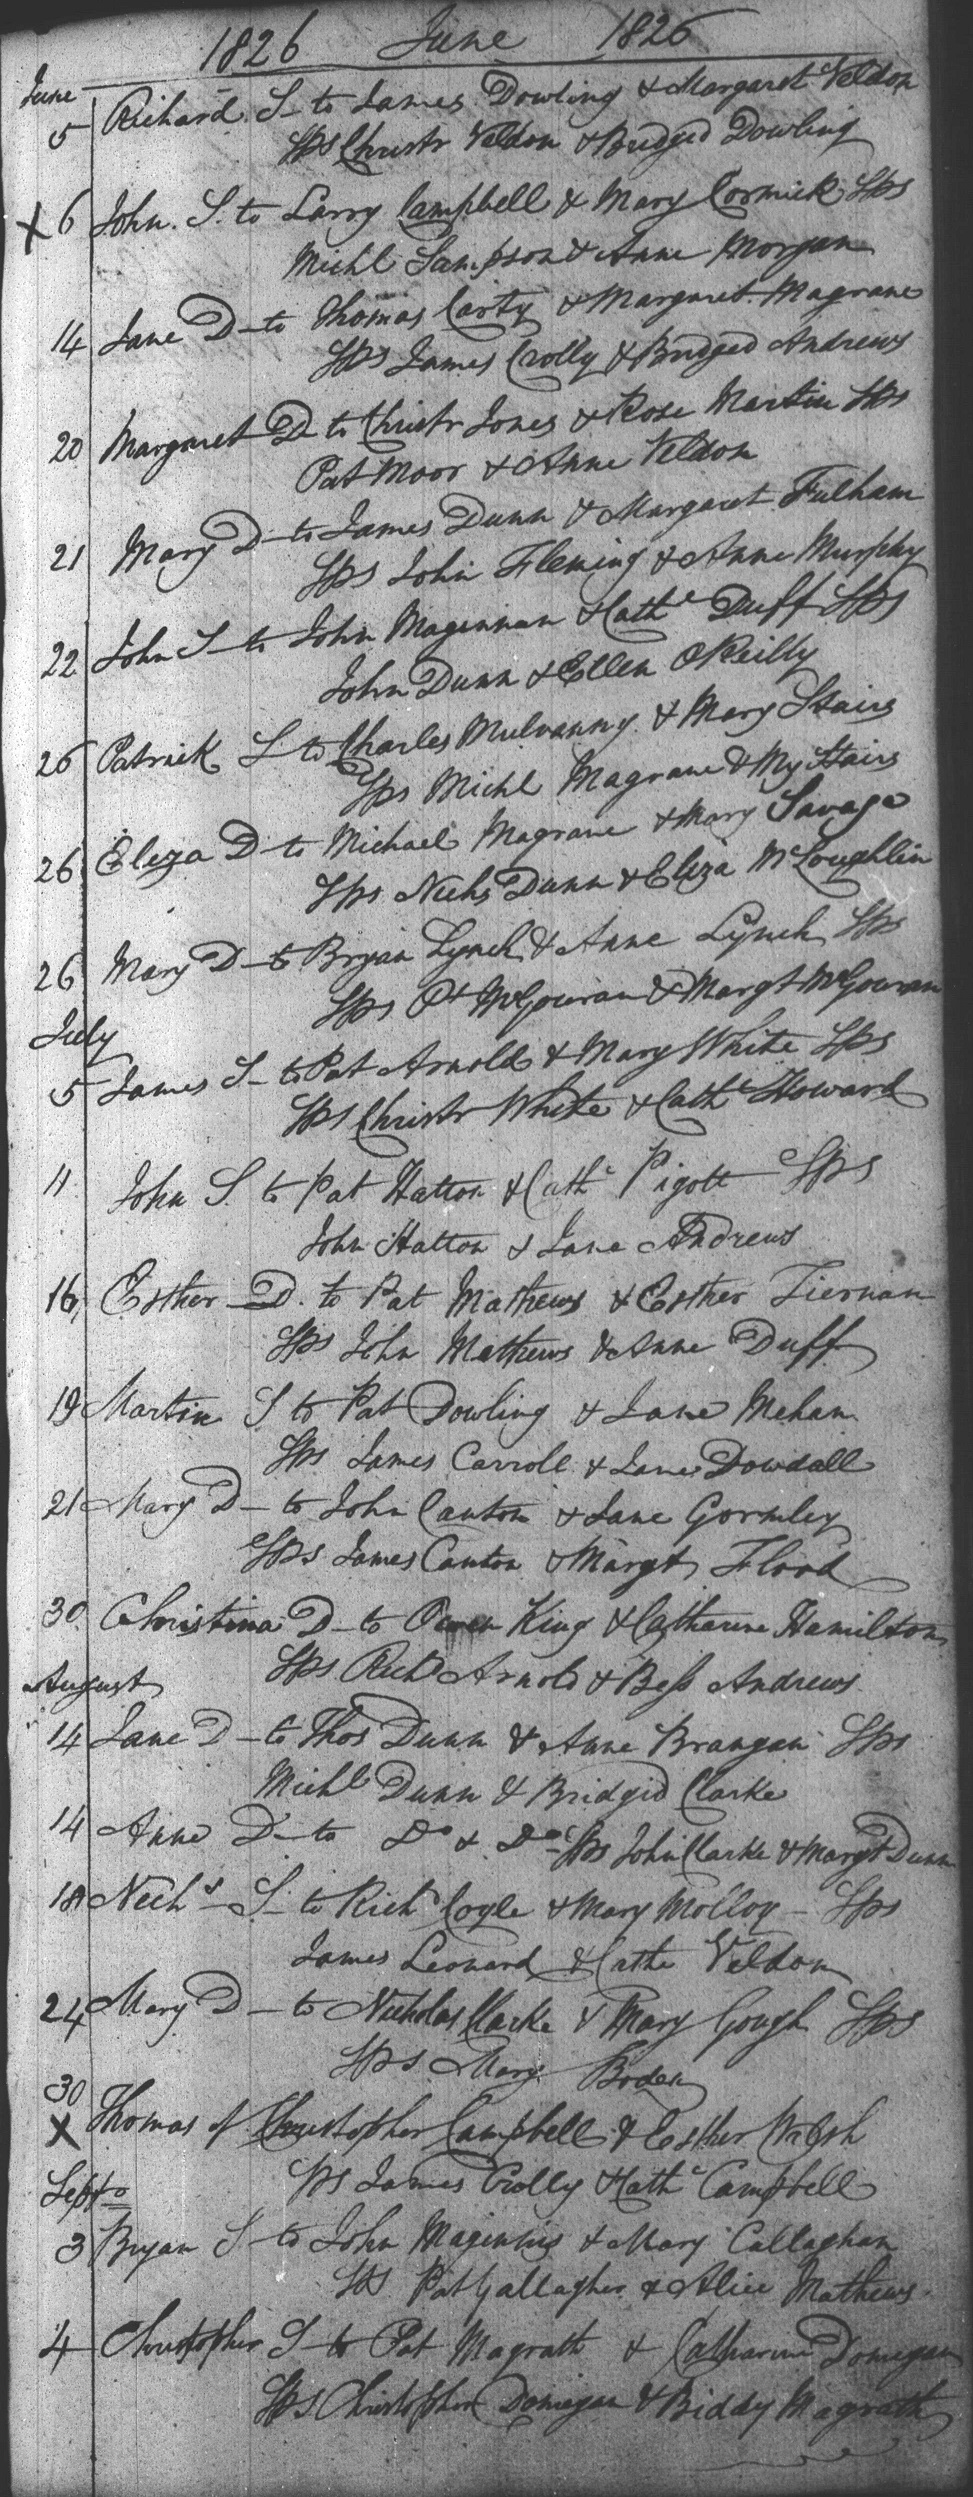 1826 June 1826
June
5 Richard S- to James Dowling & Margaret Veldon
Sps Christr Veldon & Bridged Dowling
X 6 John. S. to Larry Campbell & Mary Cormick Sps
Michl Sampson & Anne Morgan
14 Jane D- to Thomas Carty & Margaret Magrane
Sps James Crolly & Bridged Andrews
20 Margaret D- to Christr Jones & Rose Martin Sps
Pat Moor & Anne Veldon
21 Mary D- to James Dunn & Margaret Fulham
Sps John Fleming & Anne Murphy
22 John S- to John Magennan & Cathe Duff Sps
John Dunn & Ellen OReilly
26 Patrick S to Charles Mulvanny & Mary Stairs
Sps Michl Magrane & My Stairs
26 Eliza D- to Michael Magrane & Mary Savage
Sps Nichs Dunn & Eliza McLoughlin
26 Mary D- to Bryan Lynch & Anne Lynch Sps
Sps Pt McGouran & Margt McGouran
July
5 James S- to Pat Arnold & Mary White Sps
Sps Christr White & Cathe Howard
11 John S. to Pat Hatton & Cathe Pigott Sps
John Hatton & Jane Andrews
16, Esther D. to Pat Mathews & Esther Tiernan
Sps John Mathews & Anne Duff
19 Martin S to Pat Dowling & Jane Mehan
Sps James Carroll & Jane Dowdall
21 Mary D- to John Canton & Jane Gormley
Sps James Canton & Margt Flood
30 Christina D- to Owen King & Catharine Hamilton
Sps Richd Arnold & Bess Andrews
August
14 Jane D- to Thos Dunn & Anne Brangan Sps
Michl Dunn & Bridgid Clarke
14 Anne D- to Do & Do- Sps John Clarke & Margt Dunn
18 Nichs- S- to Richd Coyle & Mary Molloy- Sps
James Leonard & Cathe Veldon
24 Mary D- to Nicholas Clarke & Mary Gough Sps
Sps Mary Boden
30
X Thomas of Christopher Campbell & Esther Walsh
Sps James Crolly & Cathe Campbell
Septr
3 Bryan S- to John Maginnis & Mary Callaghan
Sps Pat Gallagher & Alice Mathews
4 Christopher S- to Pat Magrath & Catharine Donegan
Sps Christopher Donegan & Biddy Magrath